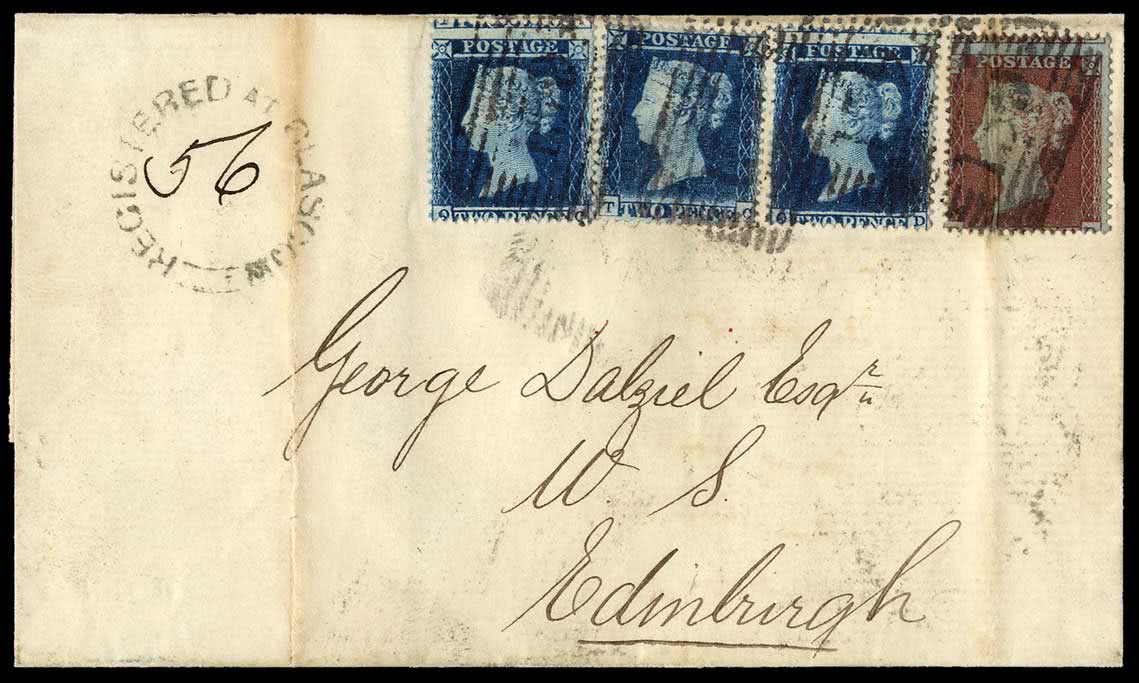 POSTAGE POSTAGE POSTAGE POSTAGE
TWO PENCE T TWO PENCE TWO PENCE D
REGISTERED AT GLASGOW
56
George Dalziel Esqr
W. S.
Edinburgh